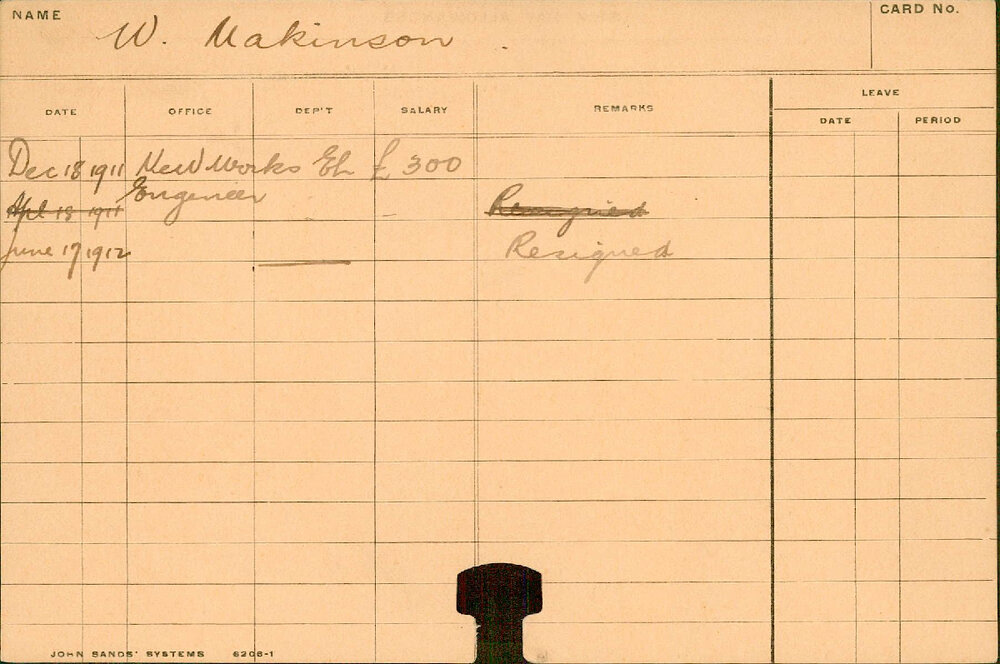 NAME
W. Makinson
CARD No.
LEAVE
DATE OFFICE DEP'T SALARY REMARKS DATE PERIOD
Dec 18 1911 New Works EL £ 300
Engineer
Apl 18 1911 Resigned
June 17 1912 Resigned
JOHN SANDS' SYSTEMS 6206-1